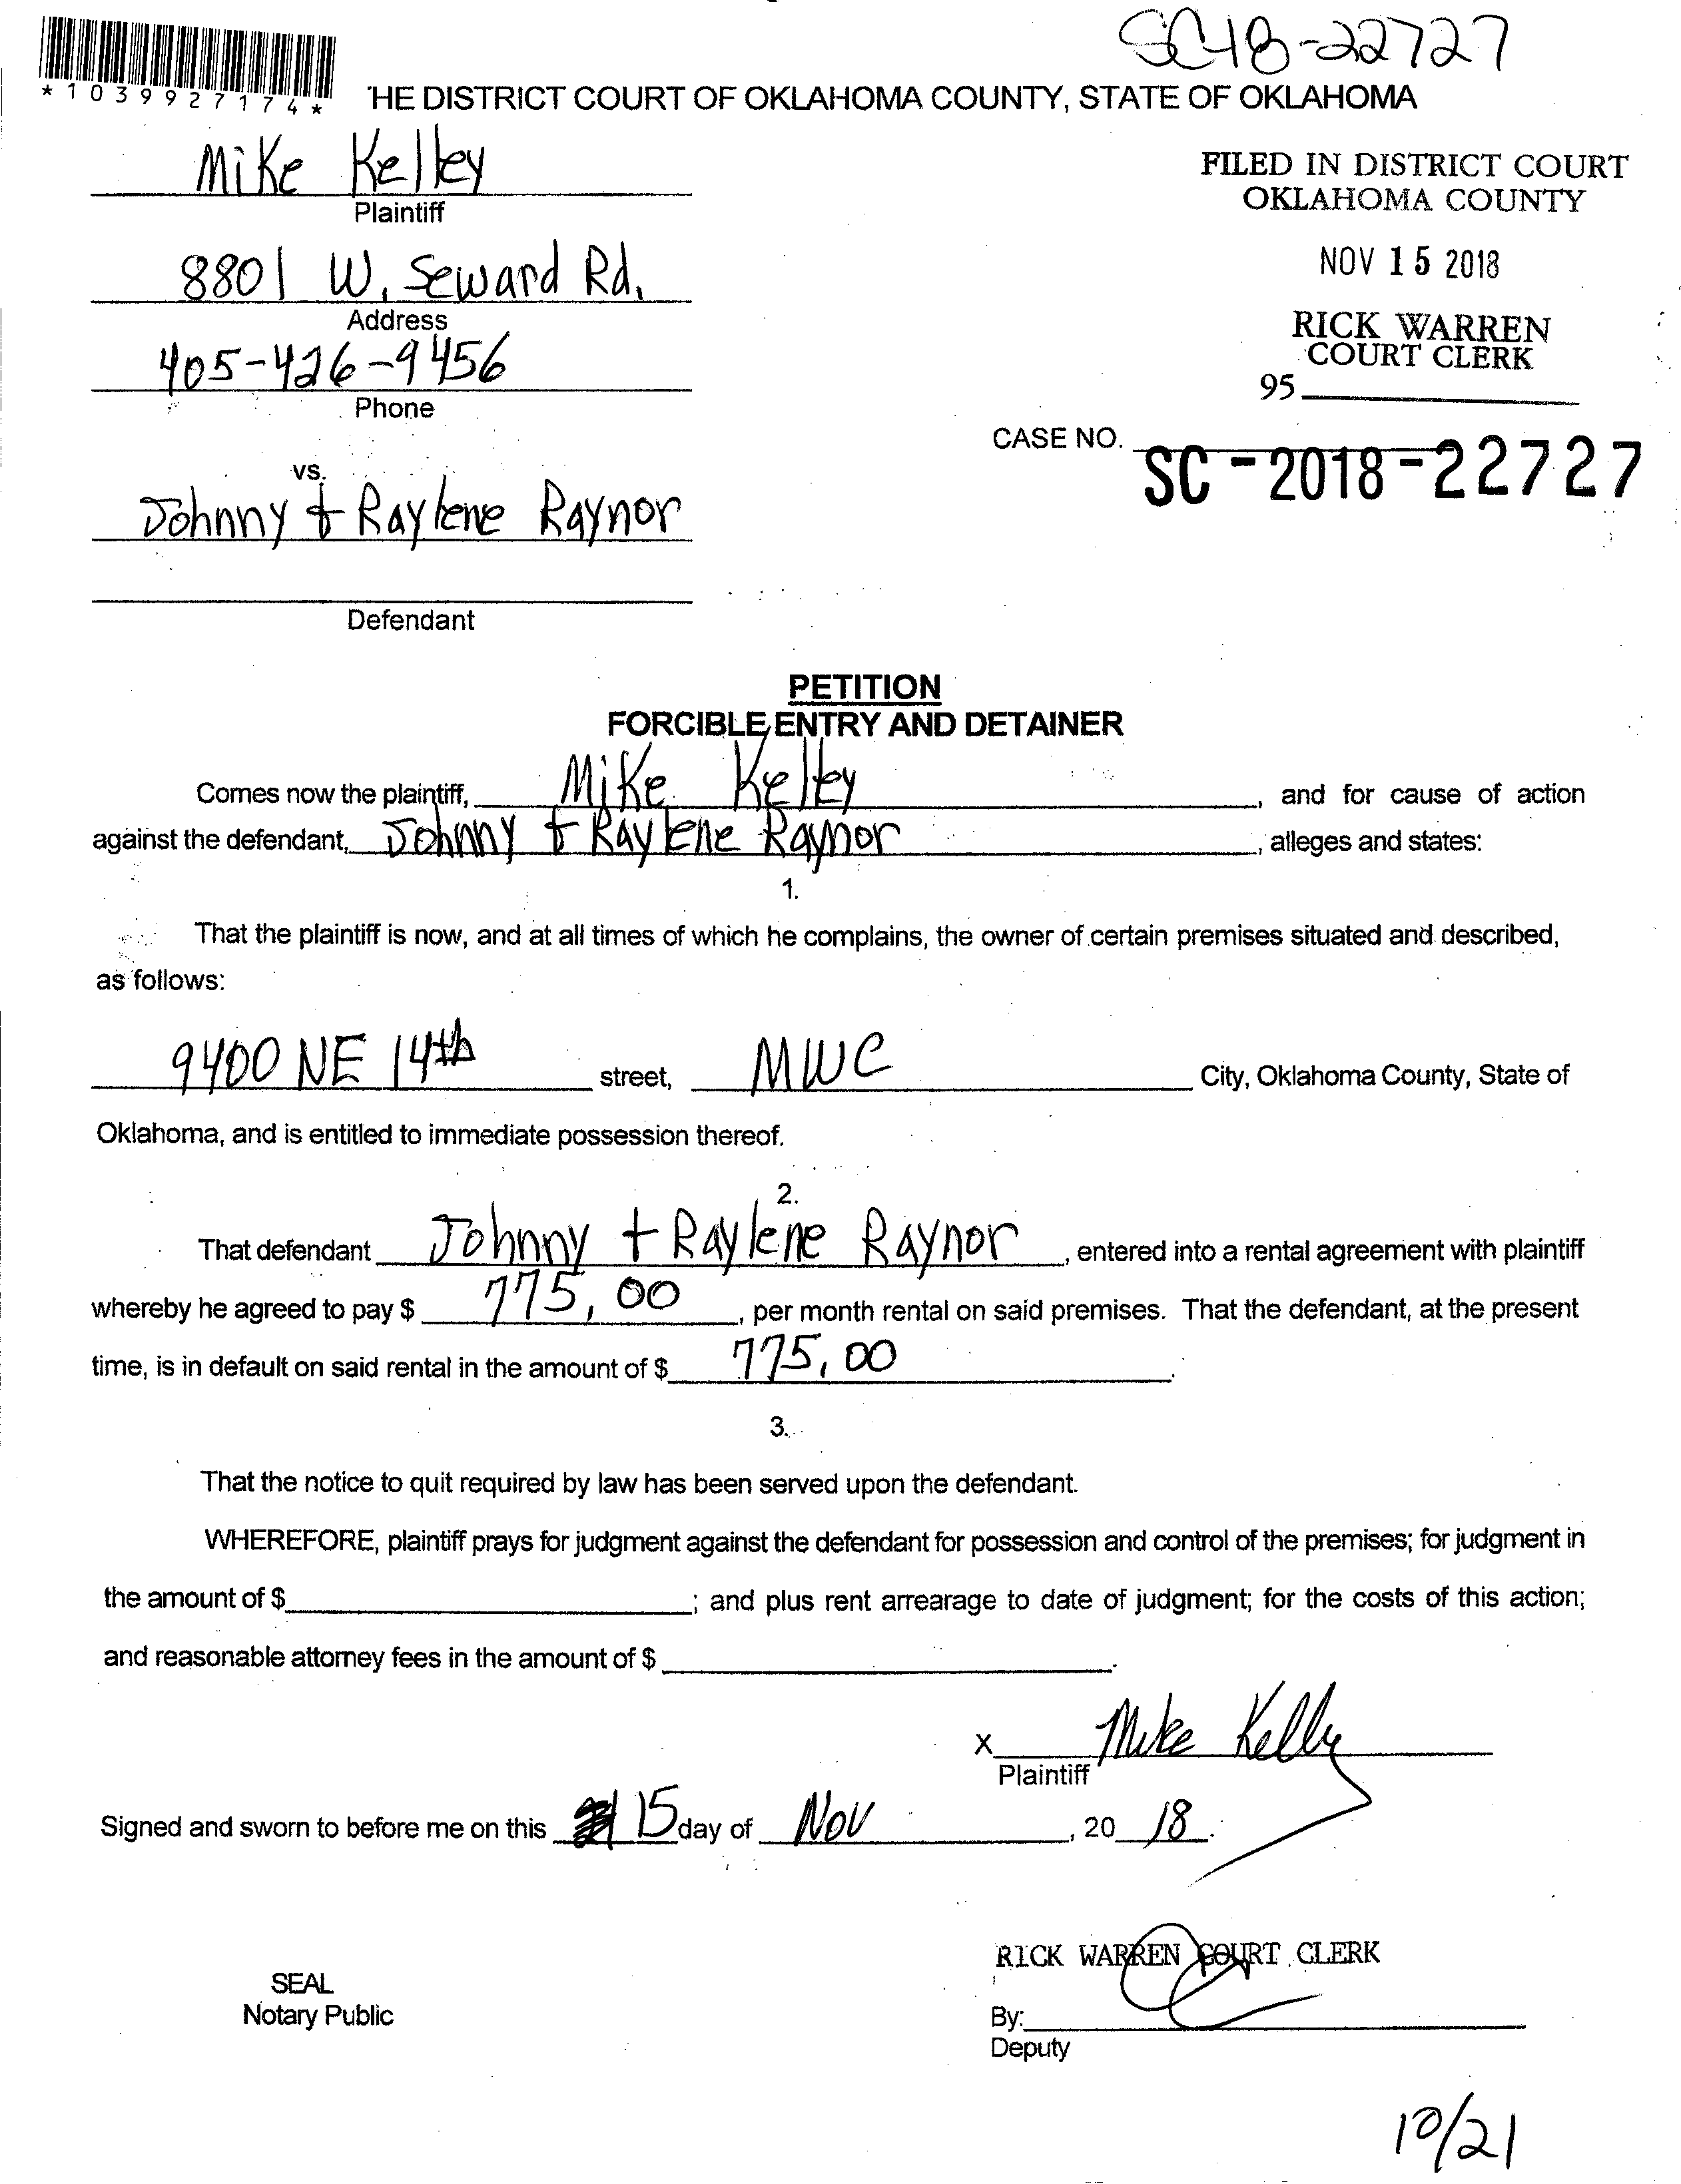 SC18-22727
*1039927174*
'HE DISTRICT COURT OF OKLAHOMA COUNTY, STATE OF OKLAHOMA
Mike Kelley
Plaintiff
FILED IN DISTRICT COURT
OKLAHOMA COUNTY
8801 W. Seward Rd.
Address
NOV 15 2018
RICK WARREN
COURT CLERK
405-426-9456
Phone
95
CASE NO. SC-2018-22727
vs.
Johnny + Raylene Raynor
Defendant
PETITION
FORCIBLE ENTRY AND DETAINER
Comes now the plaintiff, Mike Kelley, and for cause of action
against the defendant, Johnny + Raylene Raynor, alleges and states:
1.
That the plaintiff is now, and at all times of which he complains, the owner of certain premises situated and described,
as follows:
9400 NE 14th street, MWC City, Oklahoma County, State of
Oklahoma, and is entitled to immediate possession thereof.
2.
That defendant Johnny + Raylene Raynor, entered into a rental agreement with plaintiff
whereby he agreed to pay $ 775,00, per month rental on said premises. That the defendant, at the present
time, is in default on said rental in the amount of $ 775,00.
3.
That the notice to quit required by law has been served upon the defendant.
WHEREFORE, plaintiff prays for judgment against the defendant for possession and control of the premises; for judgment in
the amount of $ ; and plus rent arrearage to date of judgment; for the costs of this action;
and reasonable attorney fees in the amount of $ .
X Mike Kelley
Plaintiff
Signed and sworn to before me on this 15 day of Nov, 20 18.
RICK WARREN COURT CLERK
SEAL
Notary Public
By:
Deputy
10/21